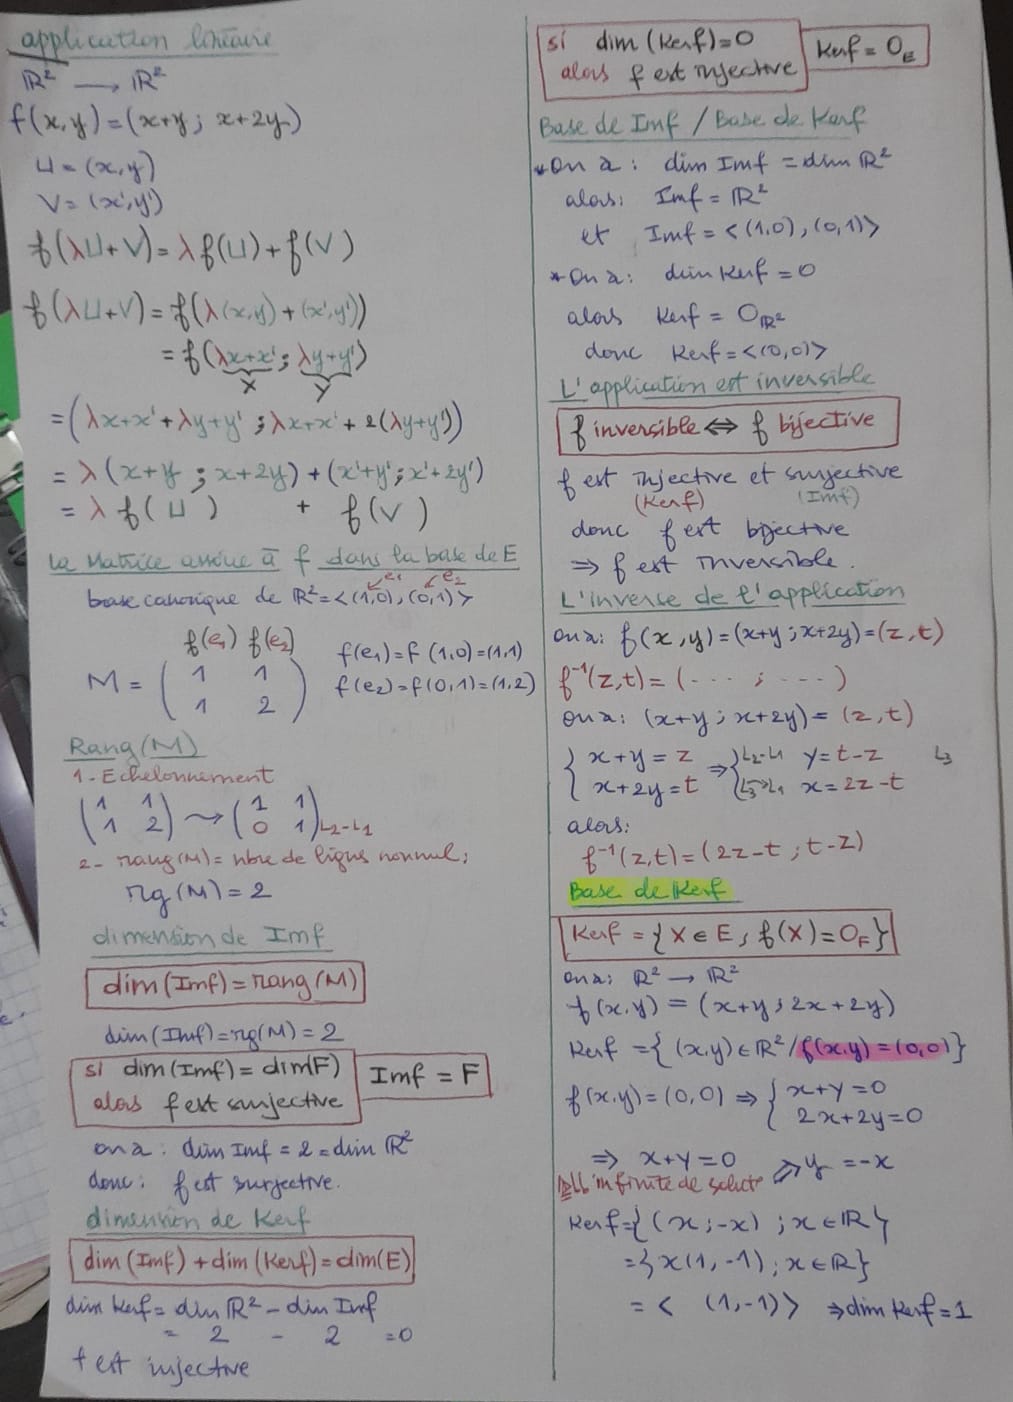 application linéaire
ℝ² → ℝ²
f(x,y)=(x+y; x+2y)
U = (x,y)
V = (x',y')
f(λU+V)=λf(U)+f(V)
f(λU+V)=f(λ(x,y)+(x',y'))
=f(λx+x'; λy+y')
X Y
=(λx+x'+λy+y'; λx+x'+2(λy+y'))
= λ(x+y; x+2y)+(x'+y'; x'+2y')
= λ f(U) + f(V)
La Matrice associée à f dans la base de E
e₁ e₂
base canonique de ℝ²=<(1,0),(0,1)>
f(e₁) f(e₂)
f(e₁)=f(1,0)=(1,1)
M = ( 1 1
1 2 )
f(e₂)=f(0,1)=(1,2)
Rang(M)
1- Echelonnement
(1 1
1 2) ⇝ (1 1
0 1) L₂-L₁
2- rang(M)= nbre de lignes non nul;
rg(M)=2
dimension de Imf
dim(Imf)=rang(M)
dim(Imf)=rg(M)=2
si dim(Imf)=dimF)
alors f est surjective
Imf = F
on a: dim Imf = 2 = dim ℝ²
donc: f est surjective.
dimension de Kerf
dim(Imf)+dim(Kerf)=dim(E)
dim Kerf = dim ℝ² - dim Imf
= 2 - 2 =0
f est injective
si dim(Kerf)=0
alors f est injective
Kerf = 0_E
Base de Imf / Base de Kerf
* On a: dim Imf = dim ℝ²
alors: Imf = ℝ²
et Imf = <(1,0),(0,1)>
* On a: dim Kerf = 0
alors Kerf = 0_ℝ²
donc Kerf = <(0,0)>
L'application est inversible
f inversible ⇔ f bijective
f est injective et surjective
(Kerf) (Imf)
donc f est bijective
⇒ f est inversible.
L'inverse de l'application
on a: f(x,y)=(x+y; x+2y)=(z,t)
f⁻¹(z,t)=(- - - ; - - -)
on a: (x+y; x+2y)=(z,t)
{ x+y=z ⇒ { L₂-L₁ y=t-z L₃
x+2y=t L₃→L₁ x=2z-t
alors:
f⁻¹(z,t)=(2z-t; t-z)
Base de Kerf
Kerf = {X∈E, f(X)=0_F}
on a: ℝ² → ℝ²
f(x,y) = (x+y; 2x+2y)
Kerf = {(x,y)∈ℝ²/f(x,y)=(0,0)}
f(x,y)=(0,0) ⇒ { x+y=0
2x+2y=0
⇒ x+y=0 ⇒ y=-x
infinité de
Kerf={(x;-x) ; x∈ℝ}
={x(1,-1); x∈ℝ}
= < (1,-1)> ⇒ dim Kerf=1